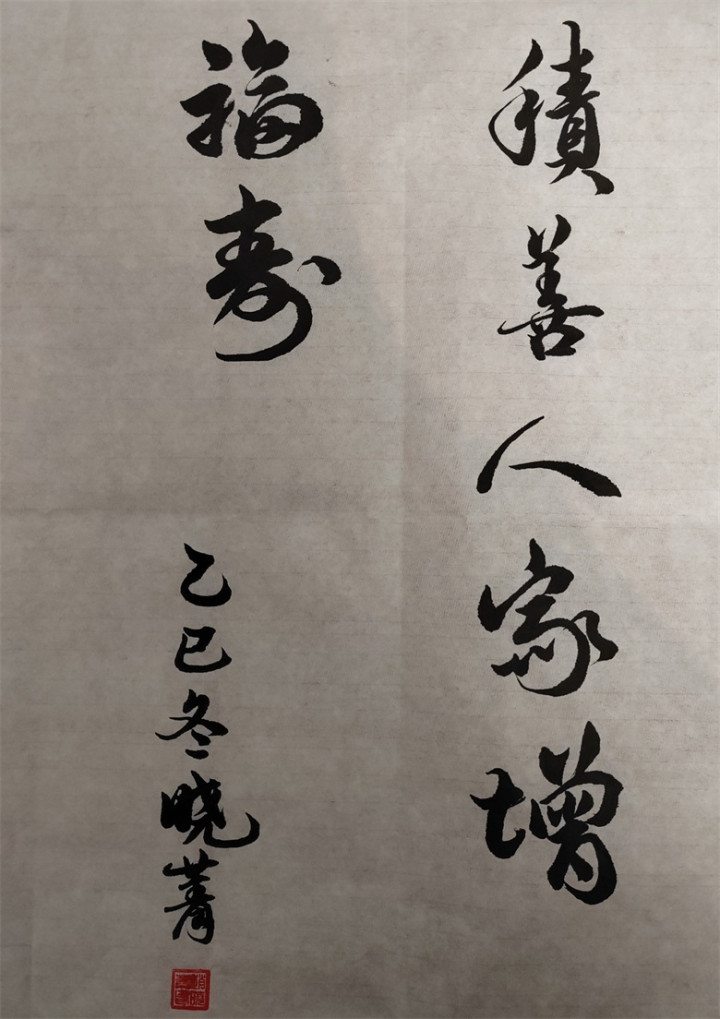 積善人家增
福寿
乙巳冬晓菁